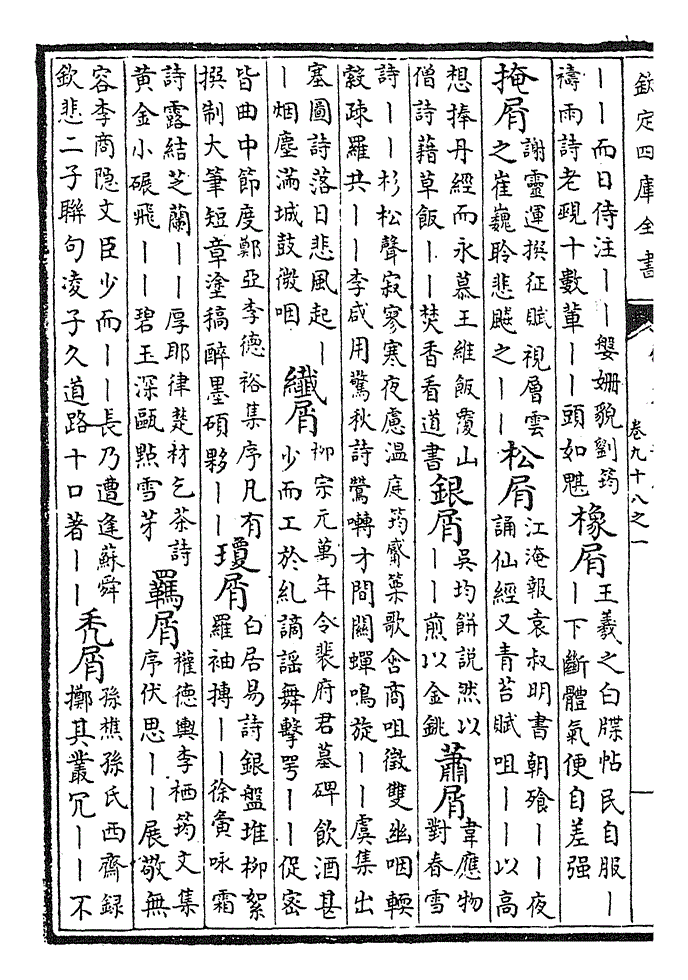 欽定四庫全書
卷九十八之一
丨丨而日侍注丨丨媻姗貌劉筠
禱雨詩老覡十數輩丨丨頭如魌
橡屑
王羲之白牒帖民自服丨
丨下斷體氣便自差强
掩屑
謝靈運撰征賦視層雲
之崔巍聆悲飇之丨丨
松屑
江淹報袁叔明書朝飱丨丨夜
誦仙經又青苔賦咀丨丨以高
想捧丹經而永慕王維飯覆山
僧詩藉草飯丨丨焚香看道書
銀屑
吳均餅説然以
丨丨煎以金銚
蕭屑
韋應物
對春雪
詩丨丨杉松聲寂寥寒夜慮温庭筠觱篥歌含商咀徵雙幽咽輭
縠疎羅共丨丨李咸用驚秋詩鶯囀才間關蟬鳴旋丨丨虞集出
塞圖詩落日悲風起丨
丨烟塵滿城鼓微咽
纎屑
柳宗元萬年令裴府君墓碑飲酒甚
少而工於糺謫謡舞擊咢丨丨促密
皆曲中節度鄭亞李德裕集序凡有
撰制大筆短章塗稿醉墨碩夥丨丨
瓊屑
白居易詩銀盤堆柳絮
羅袖摶丨丨徐夤咏霜
詩露結芝蘭丨丨厚耶律楚材乞茶詩
黄金小碾飛丨丨碧玉深甌點雪芽
羈屑
權德輿李栖筠文集
序伏思丨丨展敬無
容李商隐文臣少而丨丨長乃遭逢蘇舜
欽悲二子聯句凌子久道路十口著丨丨
禿屑
孫樵孫氏西齋録
擲其叢冗丨丨不